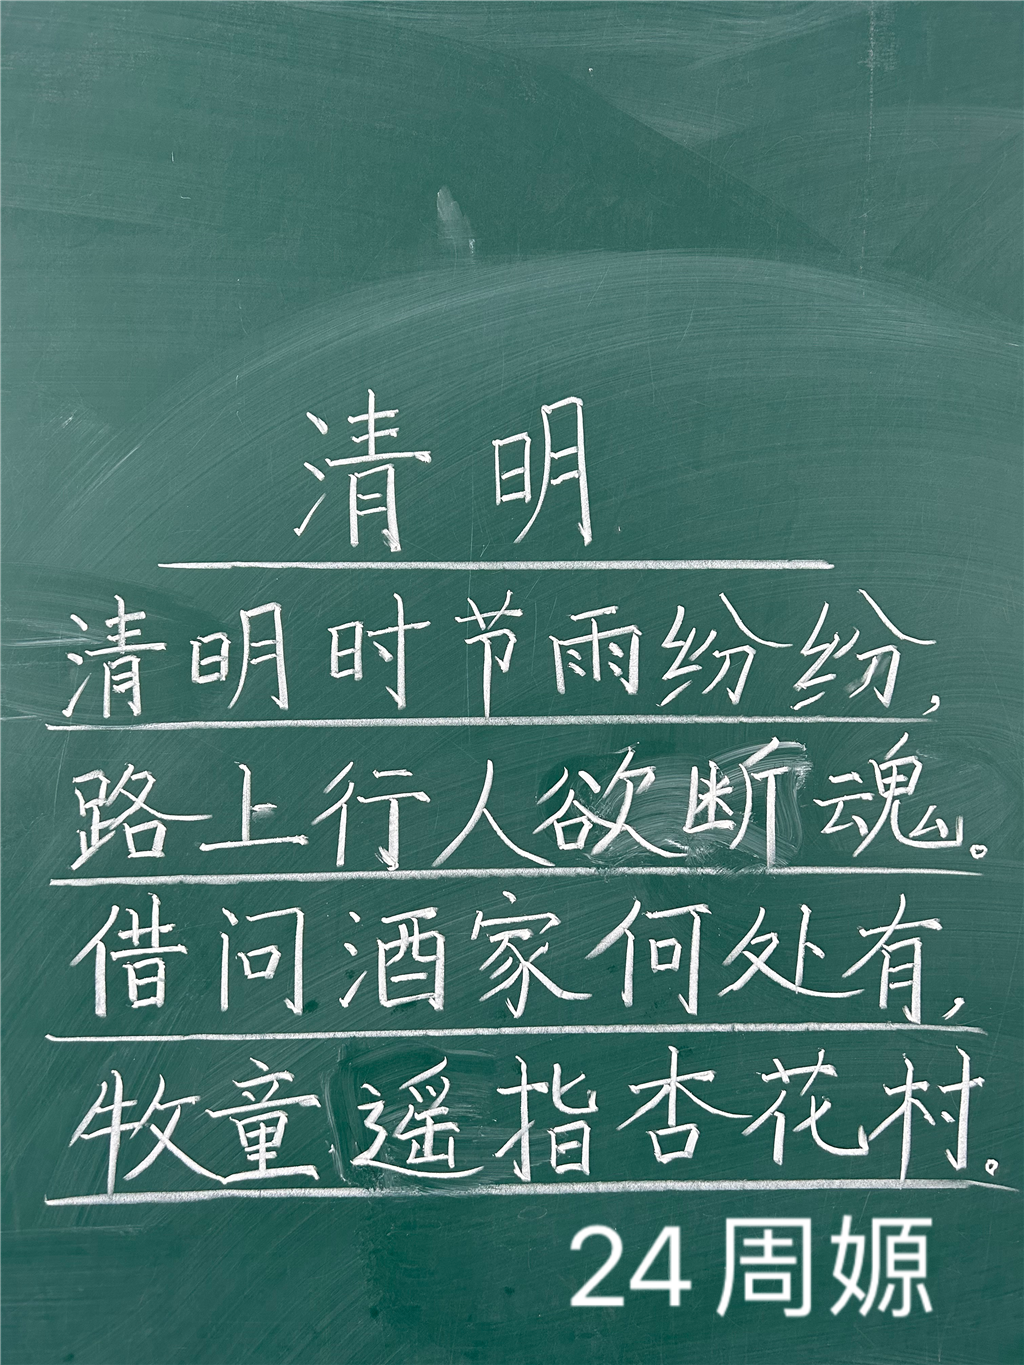 清明
清明时节雨纷纷，
路上行人欲断魂。
借问酒家何处有，
牧童遥指杏花村。
24周嫄